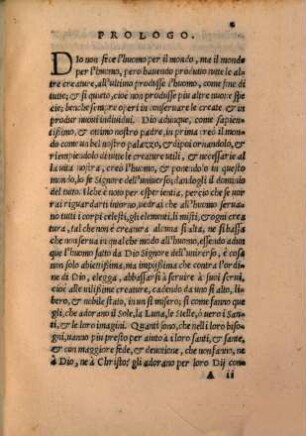 PROLOGO.
DIo non fece l'huomo per il mondo, ma il mondo
per l'huomo, però hauendo produtto tutte le al-
tre creature, all'ultimo produsse l'huomo, come fine di
tutte; & si quietò, cioè non produsse più altre nuoue spe-
cie; benche sempre operi in conseruare le create & in
produr nuoui indiuidui. Dio adunque, come sapien-
tissimo, & ottimo nostro padre, in prima creò il mondo
come un bel nostro palazzo, & dipoi ornandolo, &
riempiendolo di tutte le creature utili, & necessarie al
la uita nostra, creò l'huomo, & ponendolo in questo
mondo, lo fe Signore dell'uniuerso, dandogli il domi-
nio del tutto. Il che è noto per esperientia, percio che se uor
rai riguardarti intorno, uedrai che all'huomo serua-
no tutti i corpi celesti, gli elementi, li misti, & ogni crea
tura, tal che non è creatura alcuna si alta, ne si bassa
che non serua in qualche modo all'huomo, essendo adun
que l'huomo fatto da Dio Signore dell'uniuerso, è cosa
non solo abietissima, ma impissima che contra l'ordine
di Dio, elegga, abbassarsi à seruire à suoi serui,
cioè alle uilissime creature, cadendo da uno si alto, li-
bero, & nobile stato, in un si misero; si come fanno que
gli, che adorano il Sole, la Luna, le Stelle, ò uero i San-
ti, & le loro imagini. Quanti sono, che nelli loro biso-
gni, uanno piu presto per aiuto à i loro santi, & sante,
& con maggiore fede, & deuotione, che non fanno, ne
à Dio, ne à Christo? gli adorano per loro Dij con
A ii